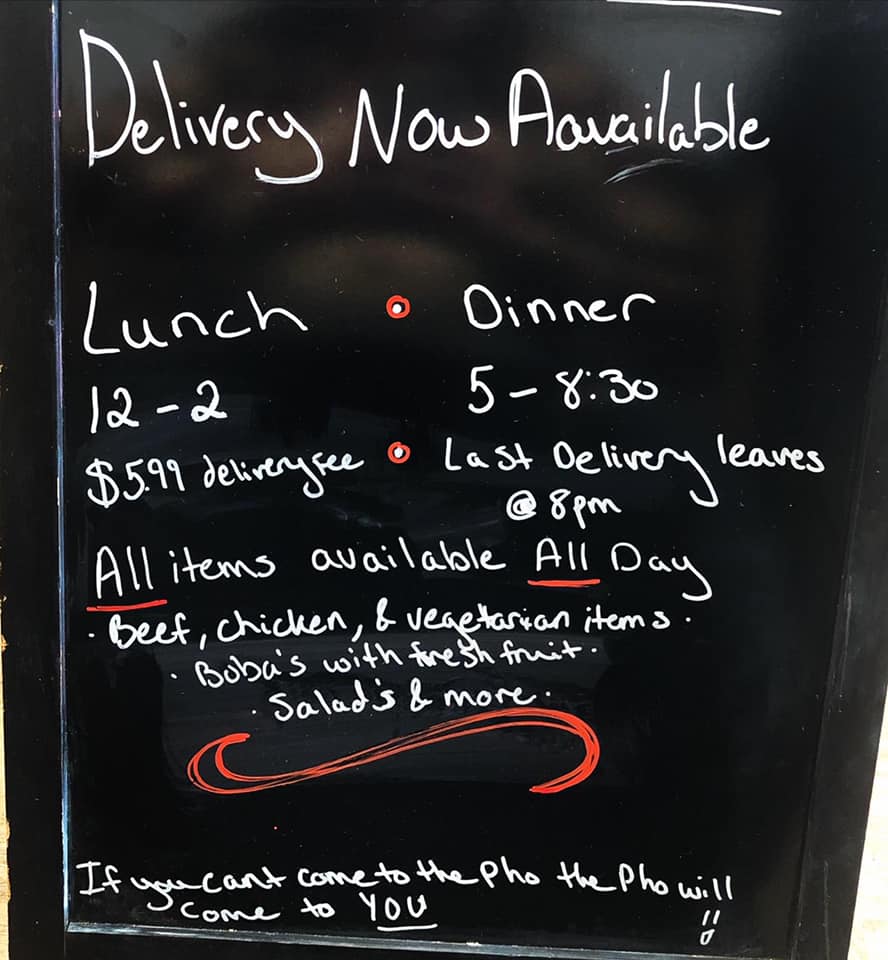 Delivery Now Aavailable
Lunch • Dinner
12 - 2 5 - 8:30
$5.99 delivery fee • Last Delivery leaves
@ 8pm
All items available All Day
· Beef, chicken, & vegetarian items ·
· Boba's with fresh fruit ·
· Salad's & more ·
If you cant come to the Pho the Pho will
come to YOU !!